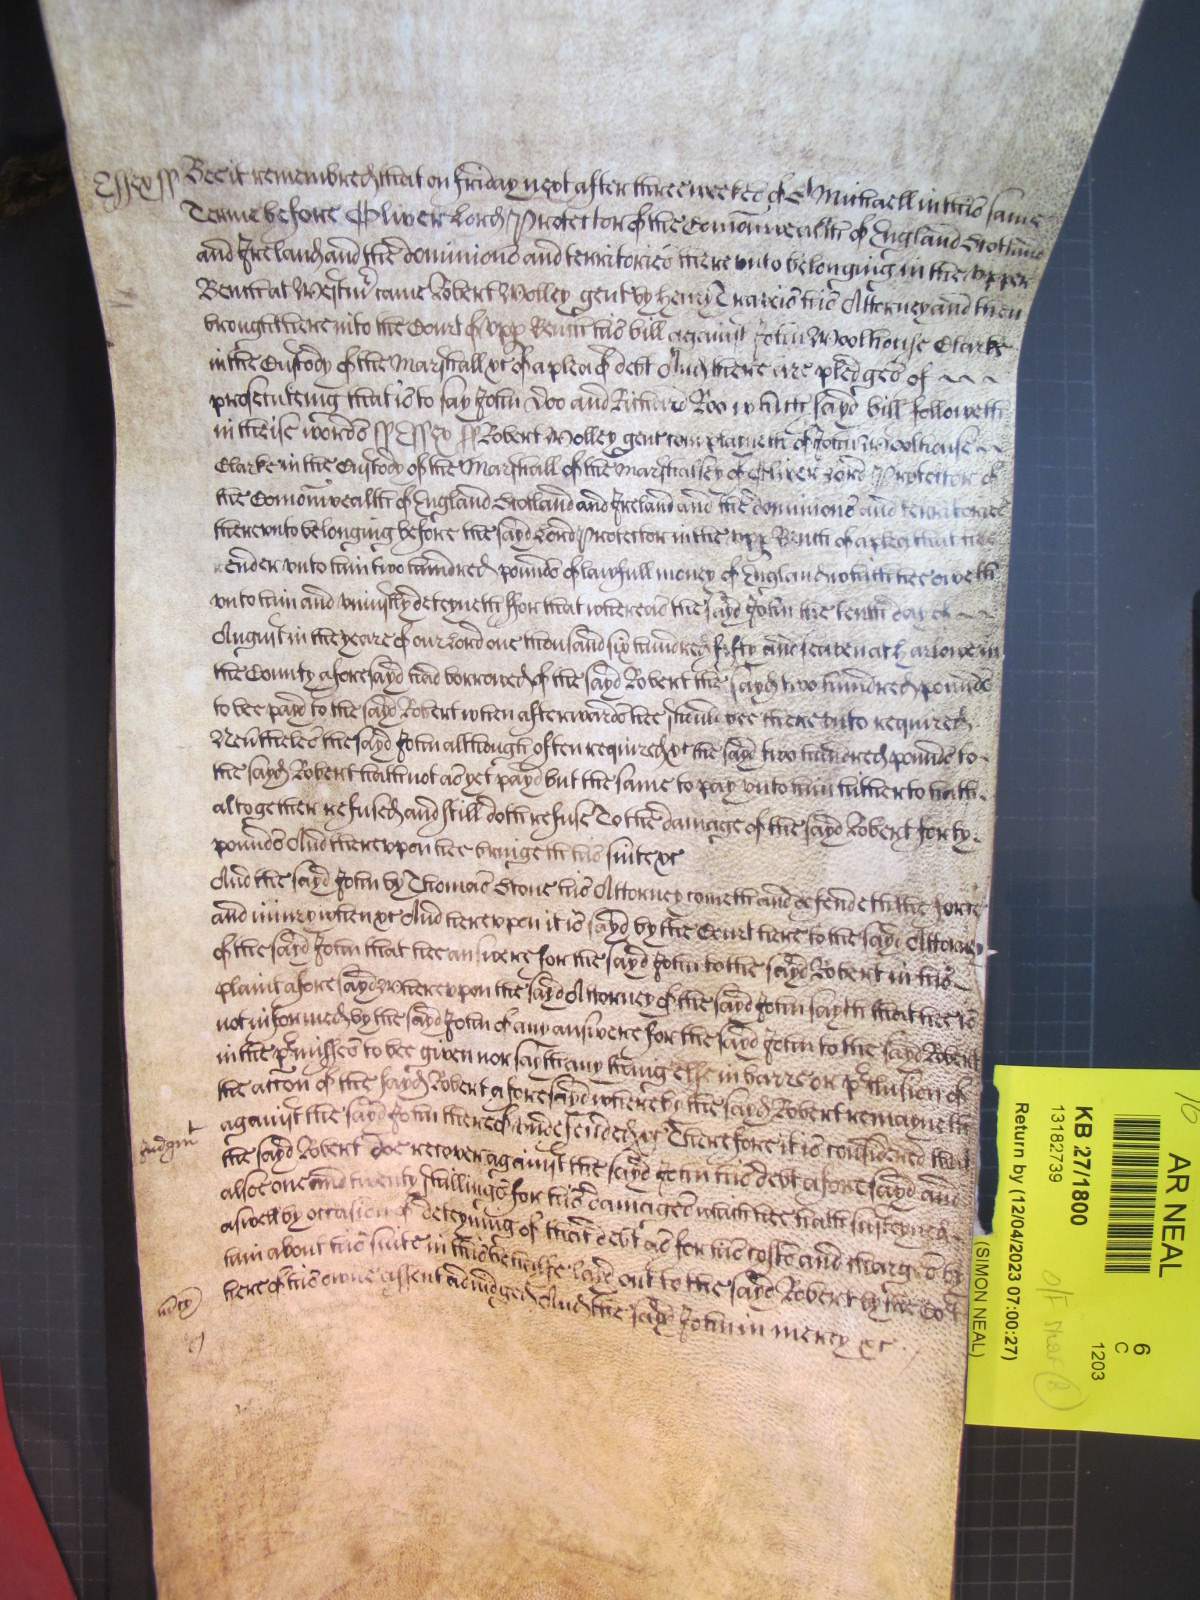 Essex ss Bee it remembred that on Friday next after three weekes of St Michaell in this same
Terme before Oliver Lord Protector of the Comonwealth of England Scotland
and Ireland and the dominions and territories thereunto belonging in the upper
Bench at Westm̃ came Robert Molley gent by Henry Travers his Attorney and then
brought here into the Court of upp Bench his bill against John Woolhouse Clarke
in the Custody of the Marshall &c of a plea of debt And there are pledges of
prosecuteing that is to say John Doo and Richard Roo which sayd bill followeth
in theise words ss Essex ss Robert Molley gent complayneth of John Woolhouse
Clarke in the Custody of the Marshall of the Marshalsey of Oliver Lord Protector of
the Comonwealth of England Scotland and Ireland and the dominions and territories
thereunto belonging before the sayd Lord Protector in the upp Bench of a plea that hee
render unto him two hundred pounds of lawfull money of England which hee oweth
unto him and uniustly deteyneth For that whereas the sayd John the tenth day of
August in the yeare of our Lord one thousand six hundred fifty and seaven at Harlowe in
the County aforesayd had borrowed of the sayd Robert the sayd two hundred pounds
to bee payd to the sayd Robert when afterwards hee should bee thereunto required
Nevtheles the sayd John although often required &c the sayd two hundred pounds to
the sayd Robert hath not as yet payd but the same to pay unto him hitherto hath
altogether refused and still doth refuse To the damage of the sayd Robert forty
pounds And thereupon hee bringeth his suite &c
And the sayd John by Thomas Stone his Attorney cometh and defendeth the force
and iniury when &c And hereupon it is sayd by the Court here to the sayd Attorney
of the sayd John that hee answere for the sayd John to the sayd Robert in his
plaint aforesayd Whereupon the sayd Attorney of the sayd John sayth that hee is
not informed by the sayd John of any answere for the sayd John to the sayd Robert
in the p̃misses to bee given nor sayth any thing else in barre or p̃clusion of
the accon of the sayd Robert aforesayd whereby the sayd Robert remayneth
against the sayd John thereof undefended &c Therefore it is considered that
Judgmt
the sayd Robert doe recover against the sayd John his debt aforesayd and
alsoe one and twenty shillings for his damages which hee hath susteyned
aswell by occasion of deteyning of that debt as for his costs and charges by
him about his suite in this behalfe layd out to the sayd Robert by the Cort
here of his owne assent adiudged And the sayd John in mercy &c
m̃cy
AR NEAL
6
C
1203
KB 27/1800
13182739
Return by (12/04/2023 07:00:27)
(SIMON NEAL)
10